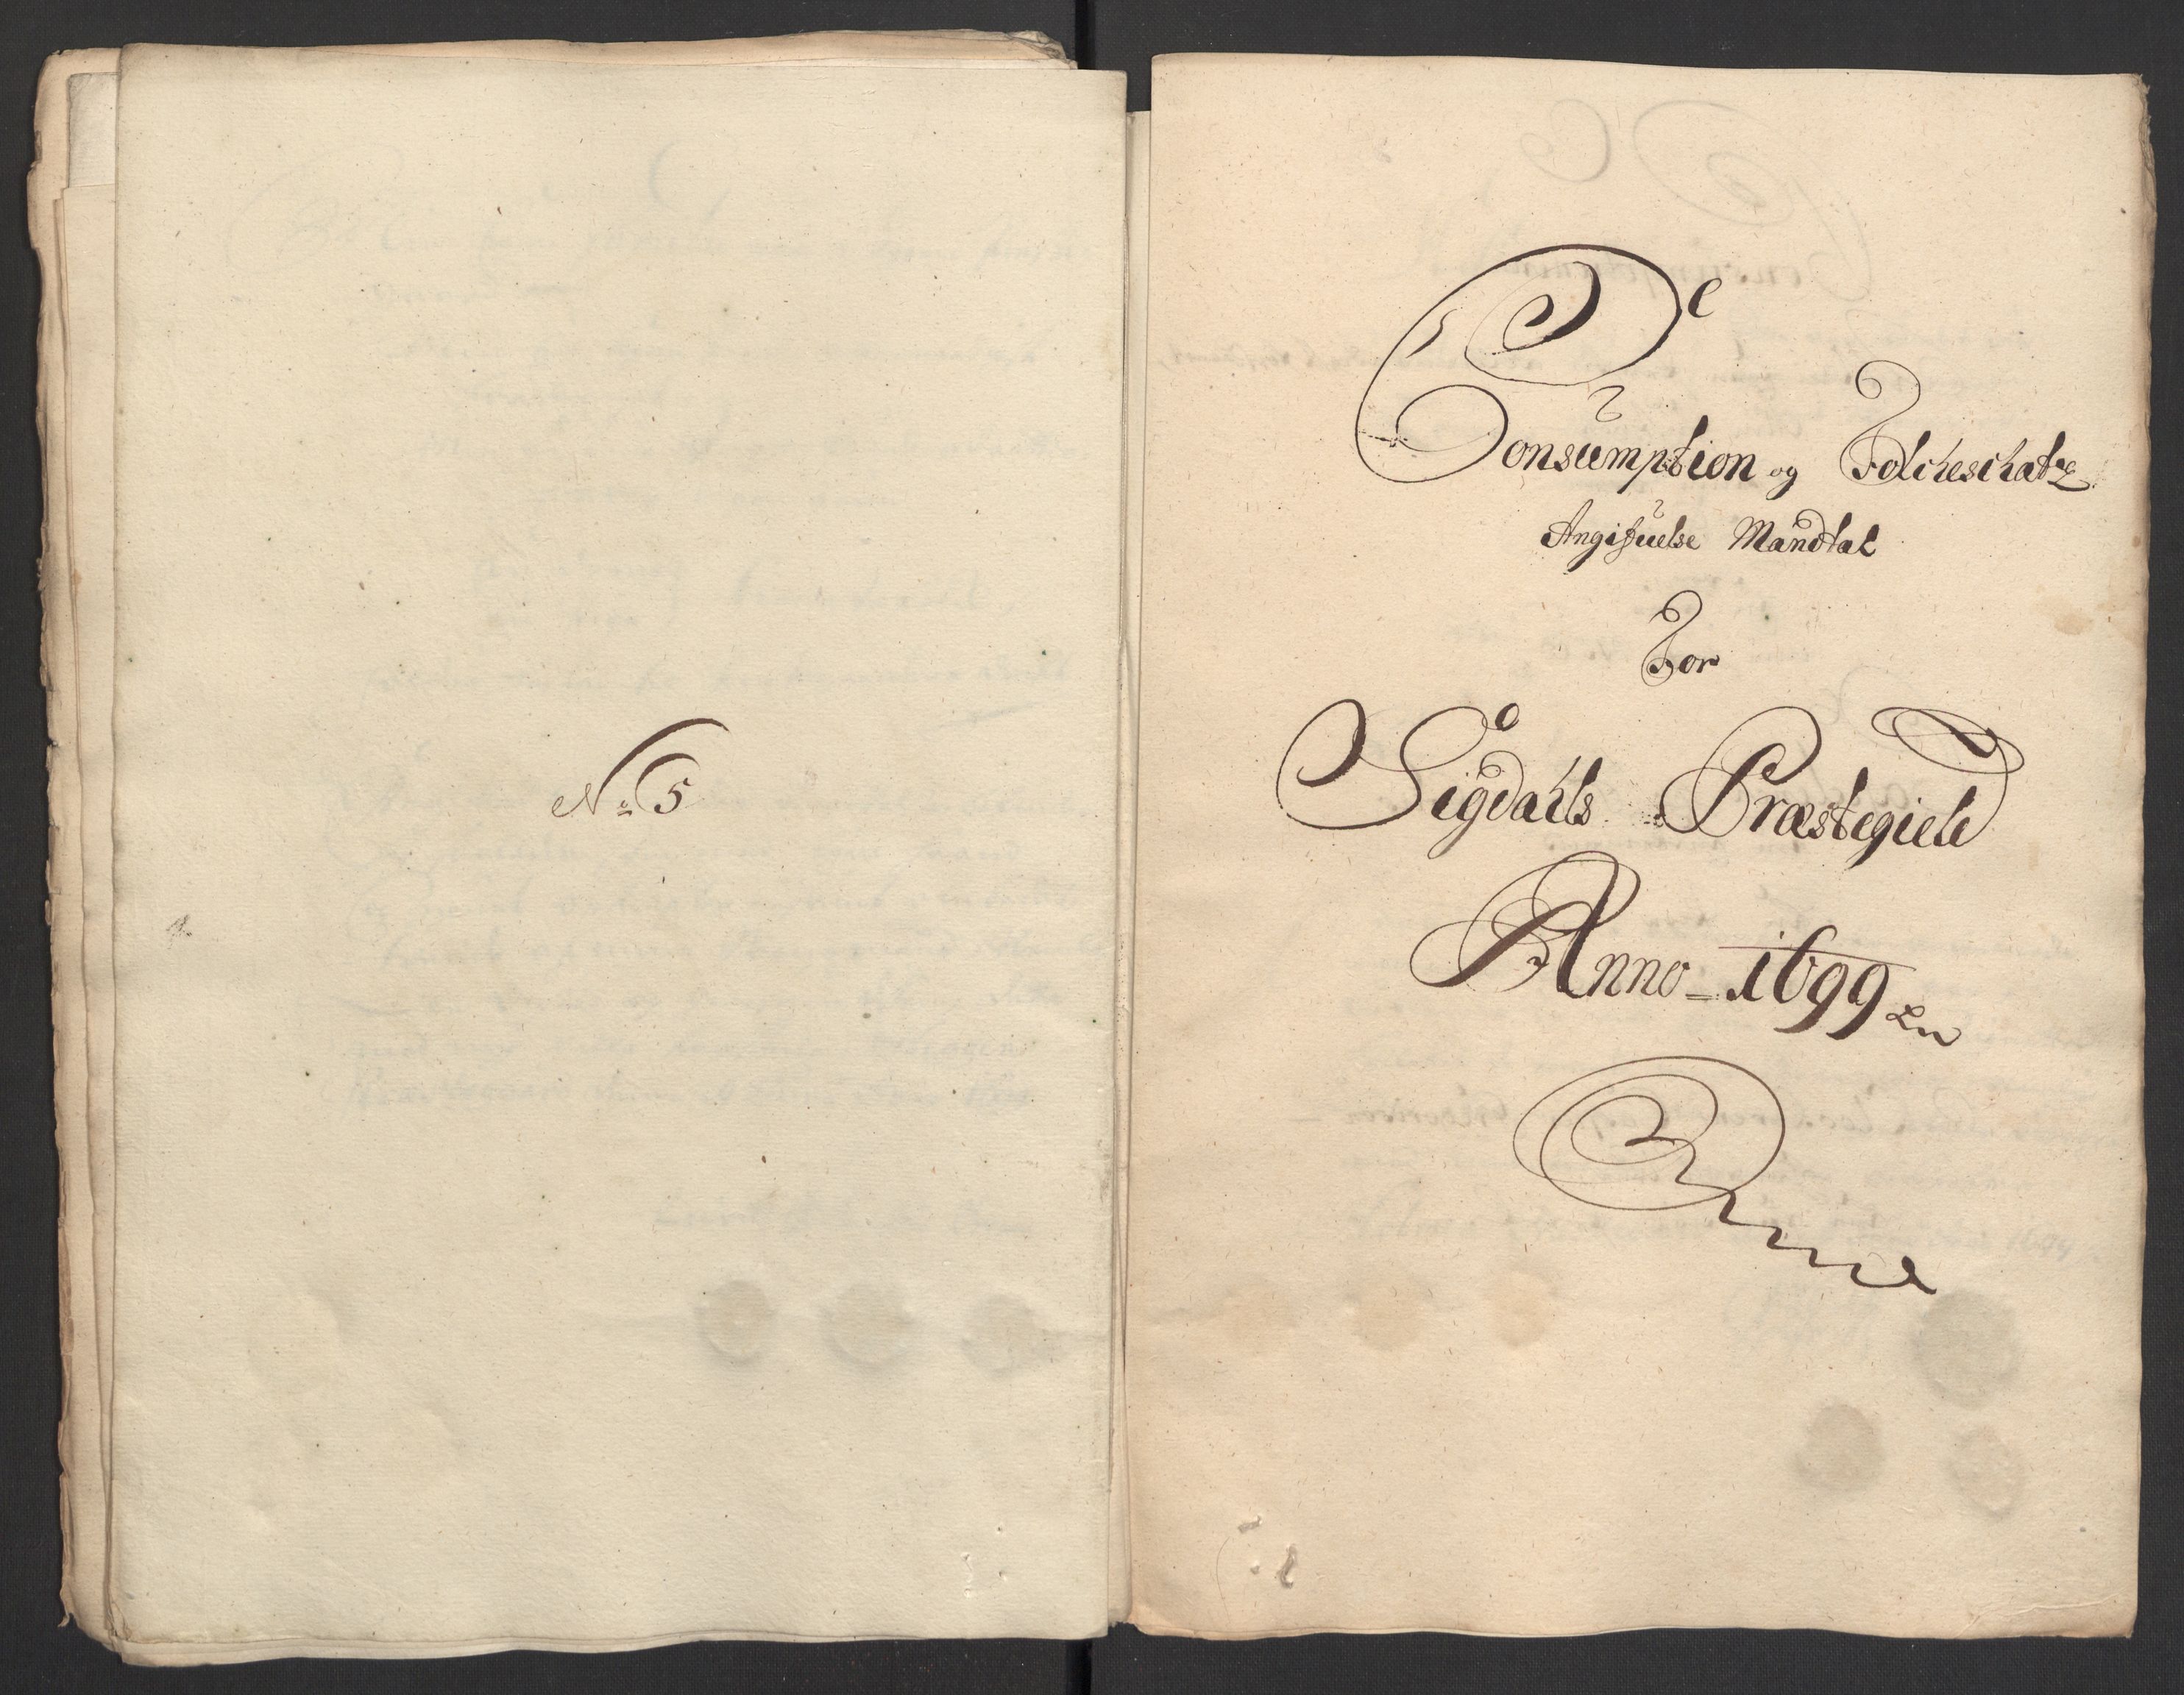 No 5
Consumption og Folcheschatz
Angifvelse Mandtal
For
Sigdahls Præstegield
Anno 1699